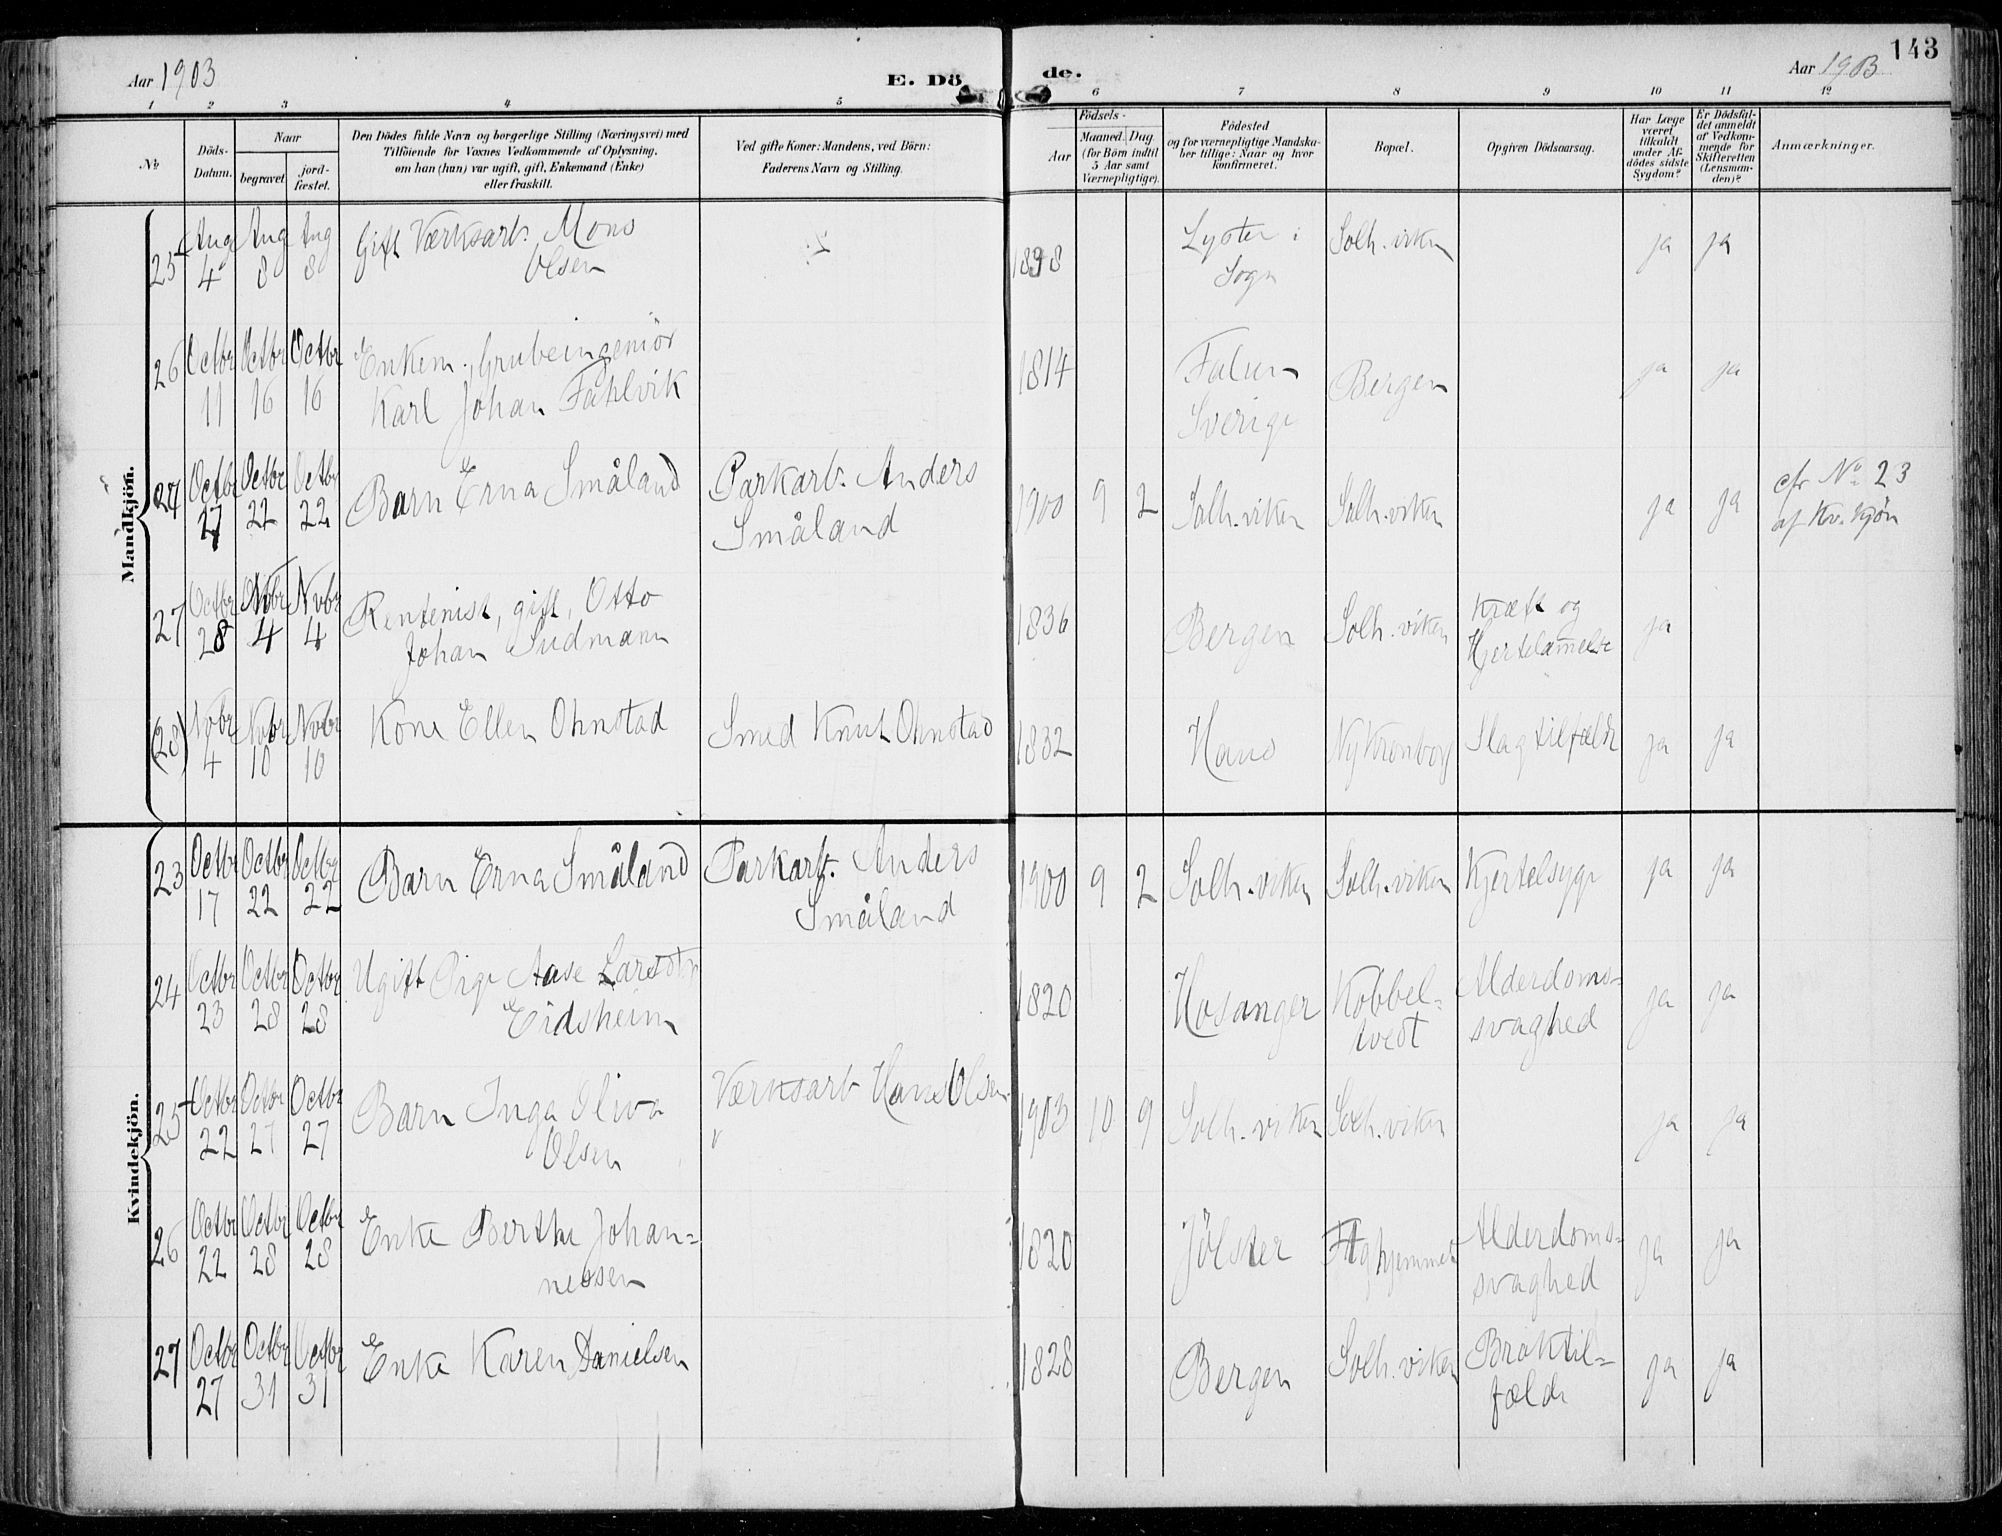 143
Aar 1903
E. Dö de.
Aar 1903
1 2 3 4 5 6 7 8 9 10 11 12
No
Döds-
Datum.
Naar
begravet
jord-
fæstet.
Den Dödes fulde Navn og borgerlige Stilling (Næringsvei) med
Tilföiende for Voxnes Vedkommende af Oplysning,
om han (hun) var ugift, gift, Enkemand (Enke)
eller fraskilt.
Ved gifte Koner: Mandens, ved Börn:
Faderens Navn og Stilling.
Födsels-
Aar
Maaned. Dag.
(for Börn indtil
5 Aar samt
Værnepligtige).
Födested
og for værnepligtige Mandska-
ber tillige: Naar og hvor
konfirmeret.
Bopæl.
Opgiven Dödsaarsag.
Har Læge
været
tilkaldt
under Af-
dödes sidste
Sygdom?
Er Dödsfal-
det anmeldt
af Vedkom-
mende for
Skifteretten
(Lensman-
den)?
Anmærkninger.
Mandkjön.
25 Aug 4 Aug 8 Aug 8 Gift Værksarb. Mons
Olsen 1838 Lyster i
Sogn Solh.viken ja ja
26 Octbr 11 Octbr 16 Octbr 16 Enkem. Grubeingeniör
Karl Johan Fahlvik 1814 Falun
Sverige Bergen ja ja
27 Octbr 17 Octbr 22 Octbr 22 Barn Erna Småland Parkarb. Anders
Småland 1900 9 2 Solh.viken Solh.viken ja ja cfr No 23
af Kv.kjön
27 Octbr 28 Novbr 4 Novbr 4 Rentenist, gift, Otto
Johan Sudmann 1836 Bergen Solh.viken Kræft og
Hjertelammelse ja
(28) Novbr 4 Novbr 10 Novbr 10 Kone Ellen Ohnstad Smed Knut Ohnstad 1832 Haus NyKronborg Slagtilfælde ja ja
Kvindekjön.
23 Octbr 17 Octbr 22 Octbr 22 Barn Erna Småland Parkarb. Anders
Småland 1900 9 2 Solh.viken Solh.viken Kjertelsyge ja ja
24 Octbr 23 Octbr 28 Octbr 28 Ugift Pige Aase Larsdtr
Eidsheim 1820 Hosanger Kobbel-
tvedt Alderdoms-
svaghed ja ja
25 Octbr 22 Octbr 27 Octbr 27 Barn Inga Oliva
Olsen Værksarb Hans Olsen 1903 10 9 Solh.viken Solh.viken ja ja
26 Octbr 22 Octbr 28 Octbr 28 Enke Berthe Johan-
nessen 1820 Jölster Alderdoms-
svaghed ja ja
27 Octbr 27 Octbr 31 Octbr 31 Enke Karen Danielsen 1828 Bergen Solh.viken Braktil-
fælde ja ja